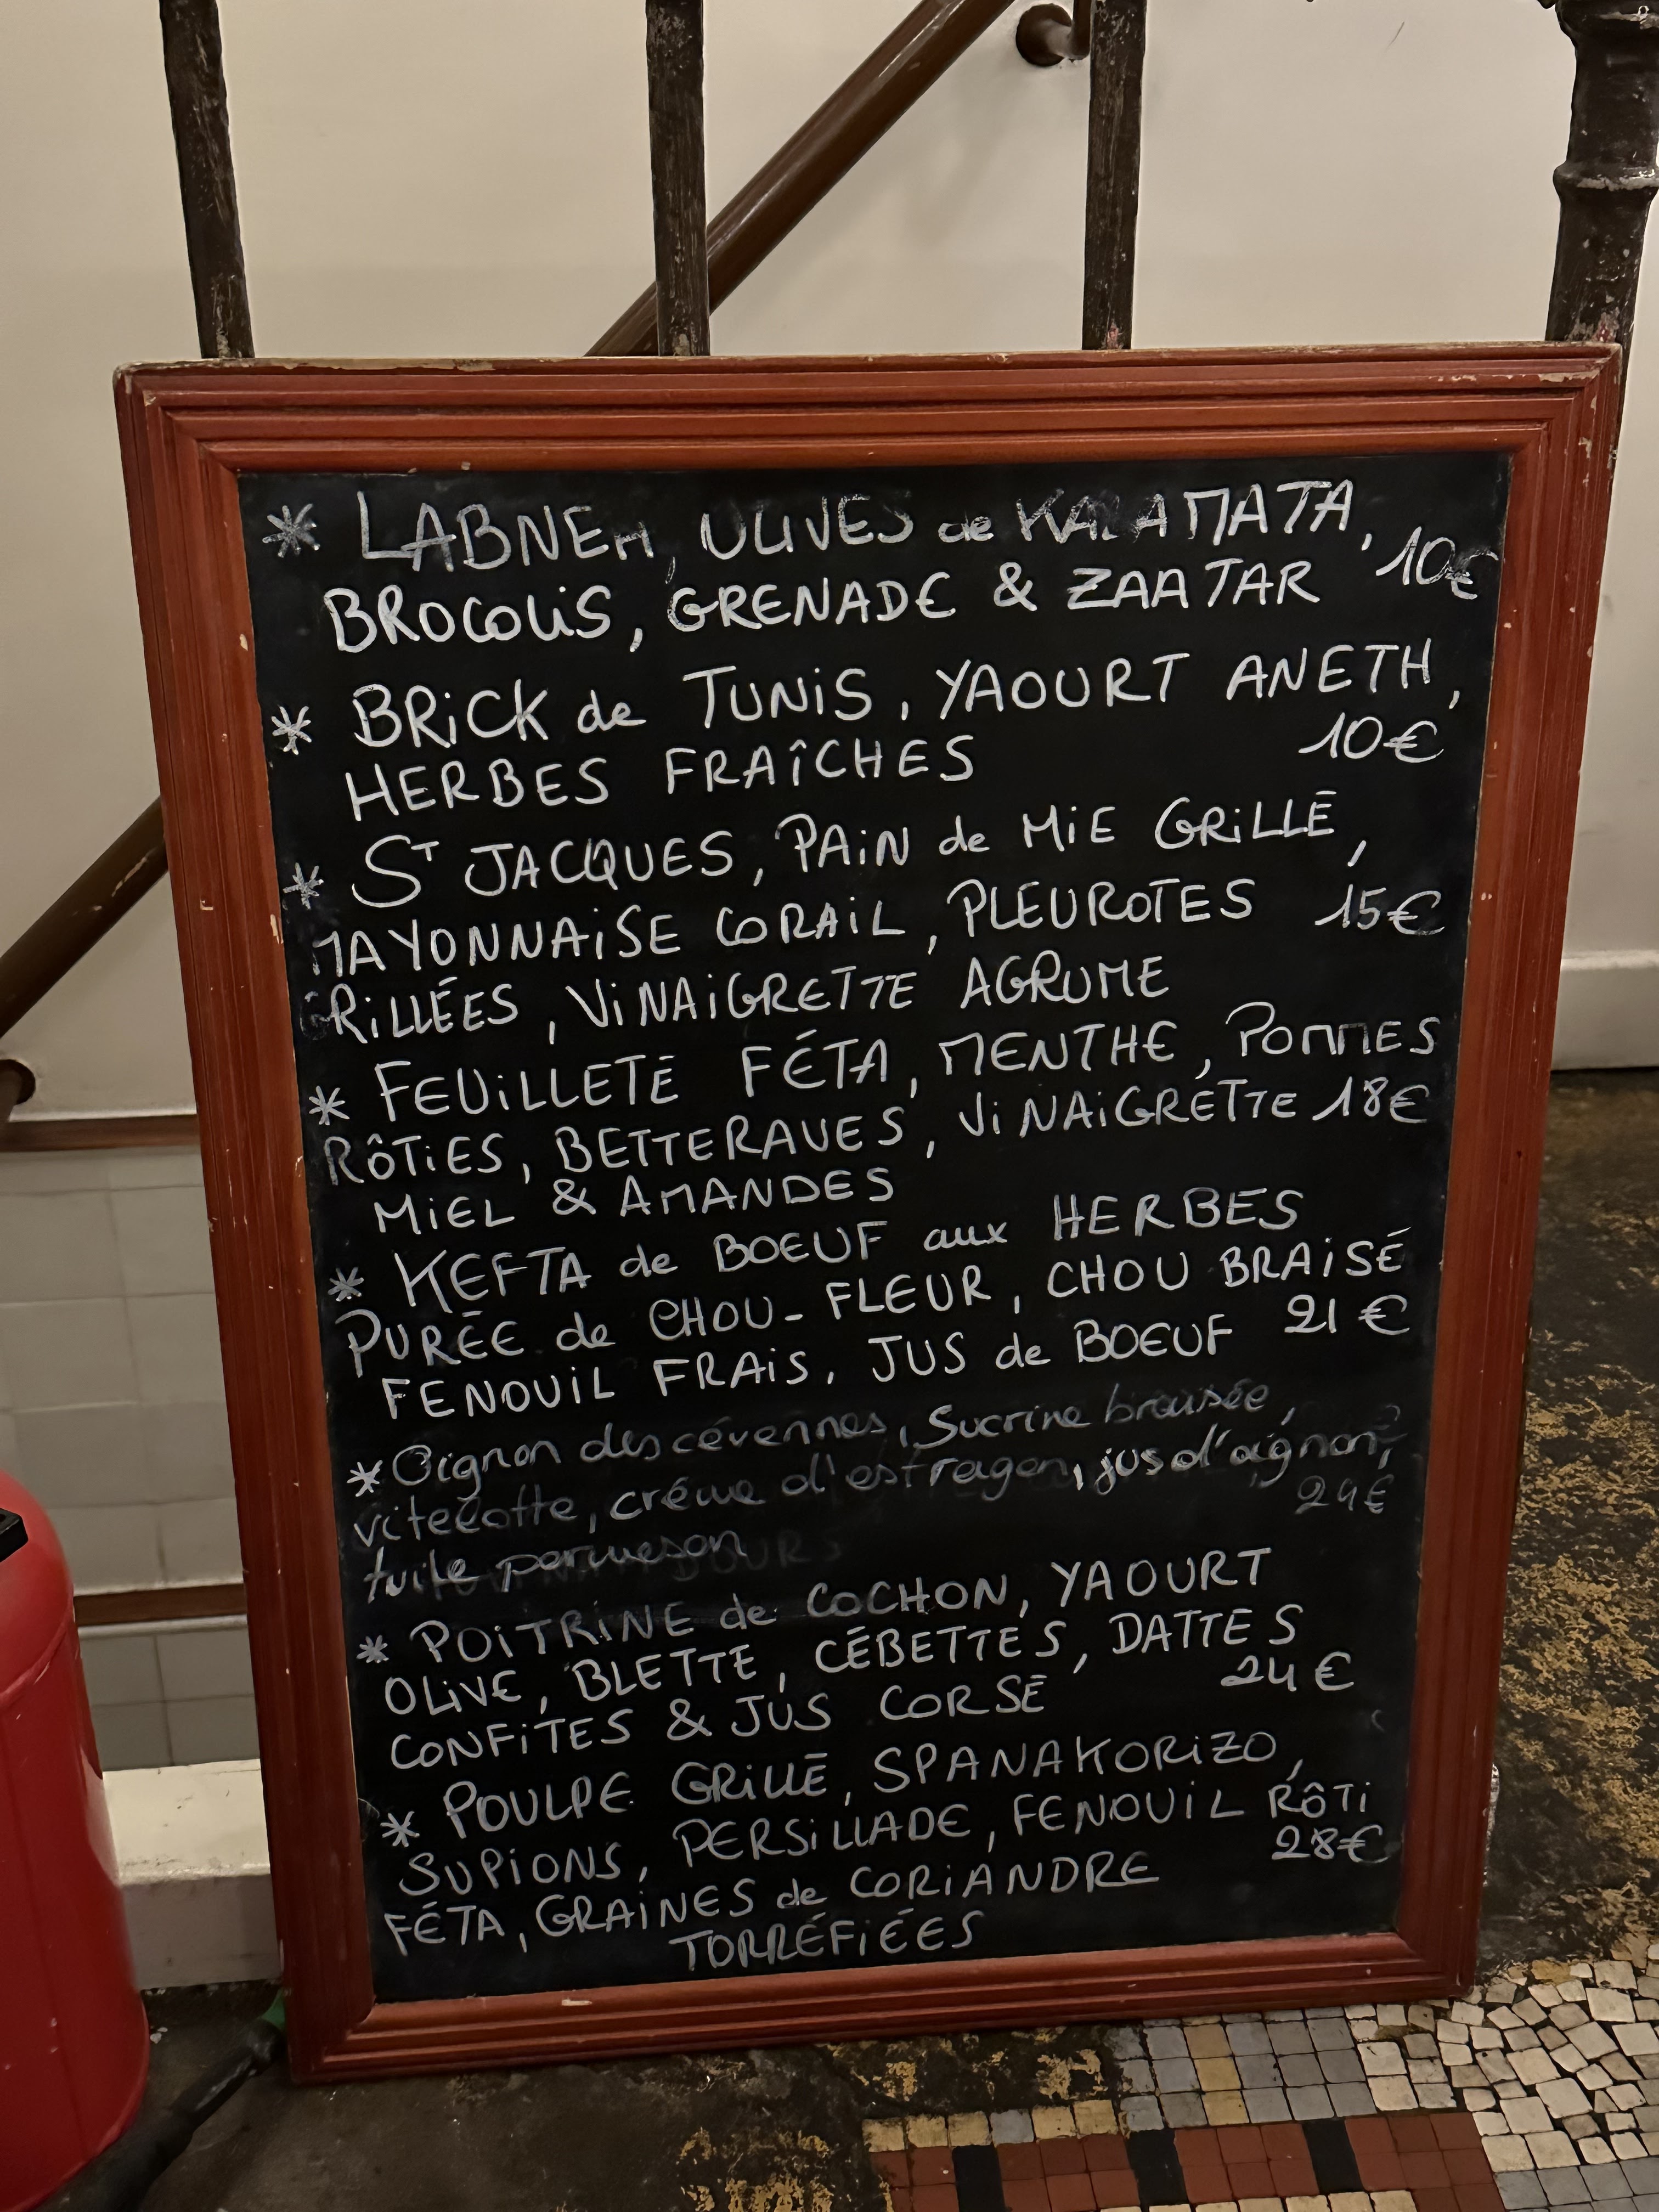 * LABNEH, OLIVES de KALAMATA,
BROCOLIS, GRENADE & ZAATAR 10€
* BRICK de TUNIS, YAOURT ANETH,
HERBES FRAÎCHES 10€
* ST JACQUES, PAIN de MIE GRILLÉ,
MAYONNAISE CORAIL, PLEUROTES 15€
GRILLÉES, VINAIGRETTE AGRUME
* FEUILLETÉ FÉTA, MENTHE, POMMES
RÔTIES, BETTERAVES, VINAIGRETTE 18€
MIEL & AMANDES
* KEFTA de BOEUF aux HERBES
PURÉE de CHOU-FLEUR, CHOU BRAISÉ
FENOUIL FRAIS, JUS de BOEUF 21€
* Oignon des cévennes, Sucrine braisée,
vitelotte, crème d'estragon, jus d'oignon,
tuile parmesan 24€
* POITRINE de COCHON, YAOURT
OLIVE, BLETTE, CÉBETTES, DATTES
CONFITES & JUS CORSÉ 24€
* POULPE GRILLÉ, SPANAKORIZO,
SUPIONS, PERSILLADE, FENOUIL RÔTI
FÉTA, GRAINES de CORIANDRE 28€
TORRÉFIÉES